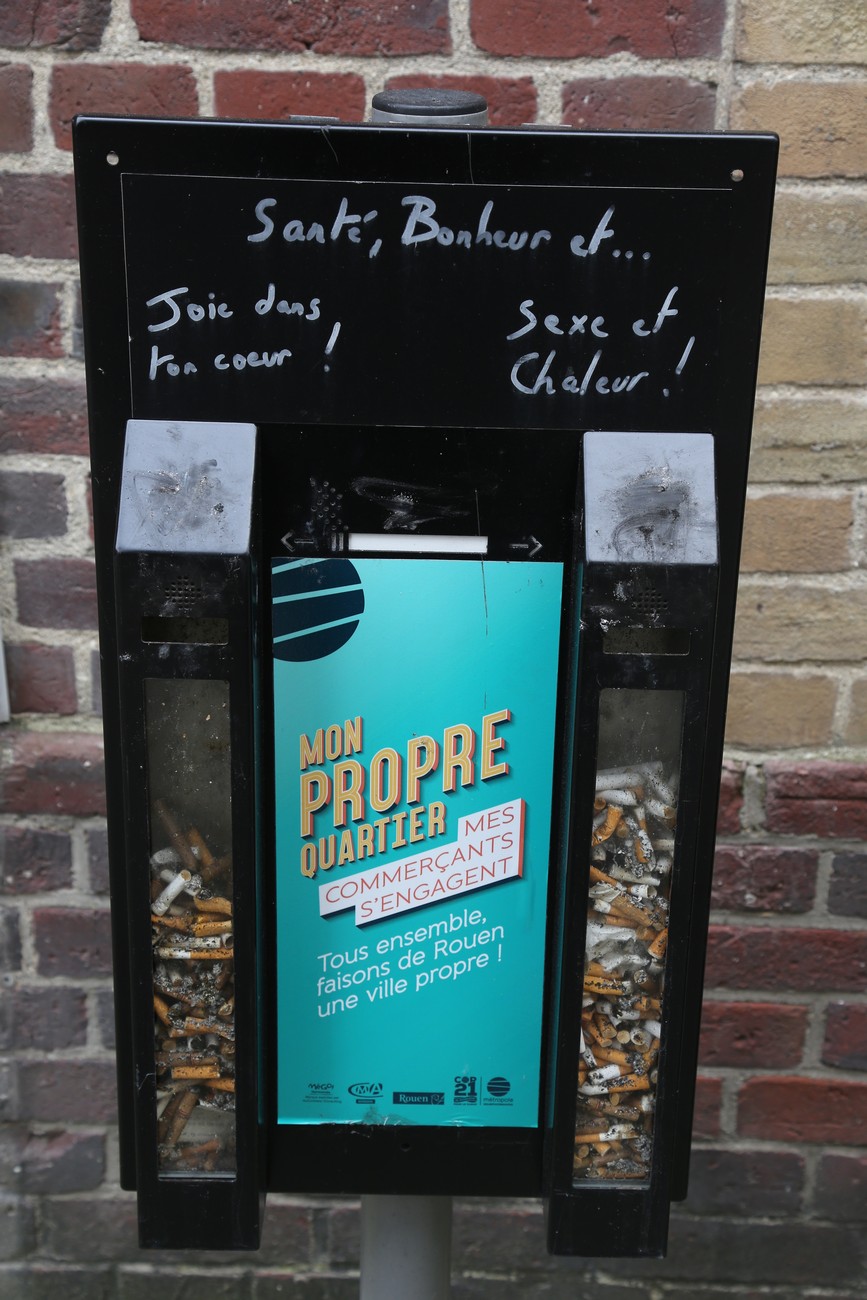 Santé, Bonheur et...
Joie dans
ton coeur !
Sexe et
Chaleur !
MON
PROPRE
QUARTIER
MES
COMMERÇANTS
S'ENGAGENT
Tous ensemble,
faisons de Rouen
une ville propre !
CMA
Rouen
COP
21
métropole